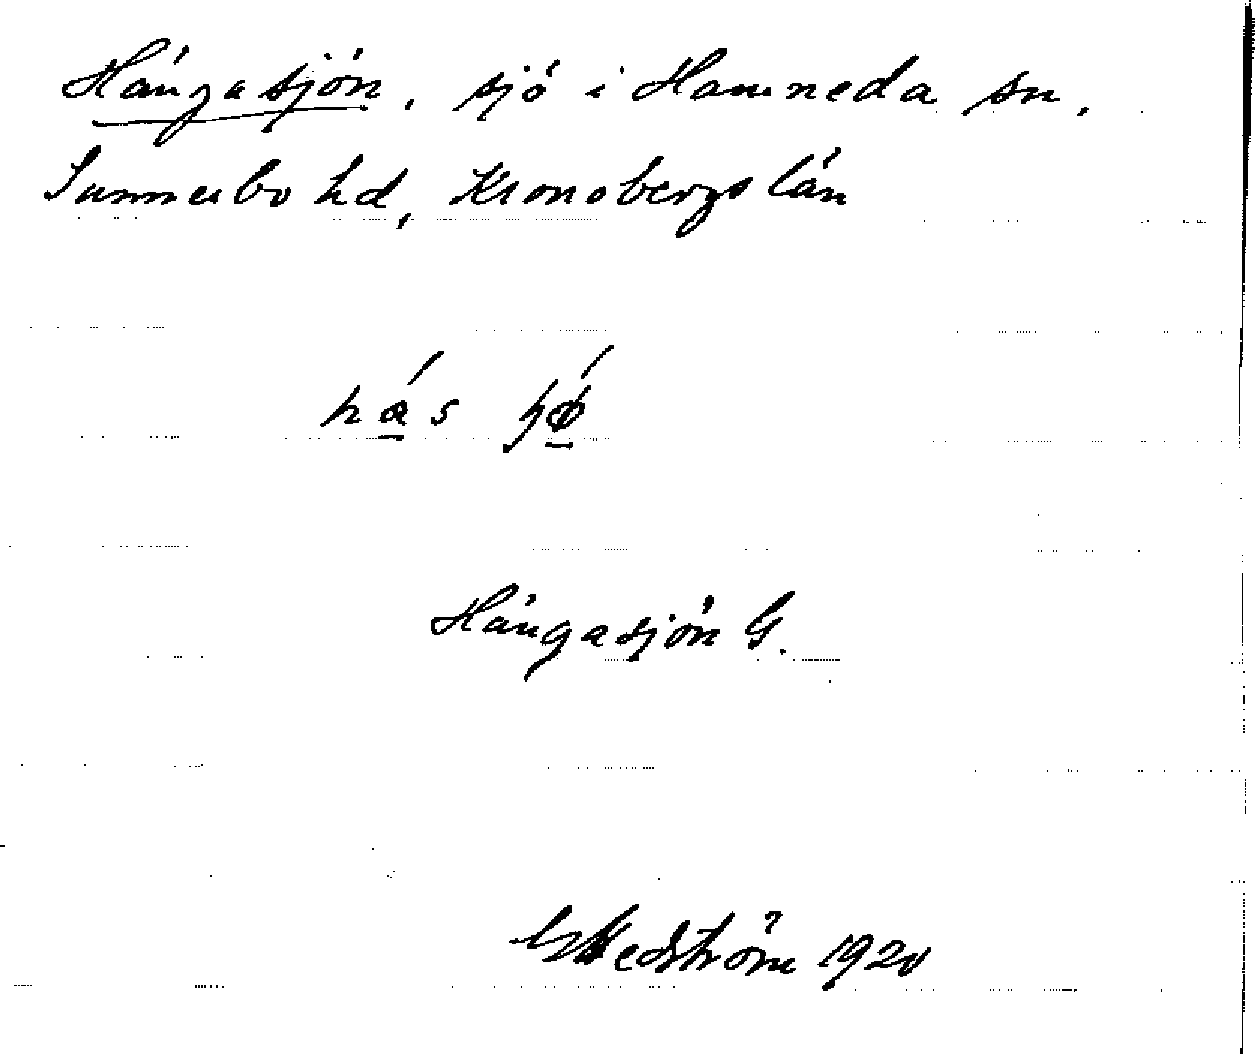 Hängasjön, sjö i Hamneda sn,
Sunnerbo hd, Kronobergs län
Hängasjön G.
G Hedström 1920